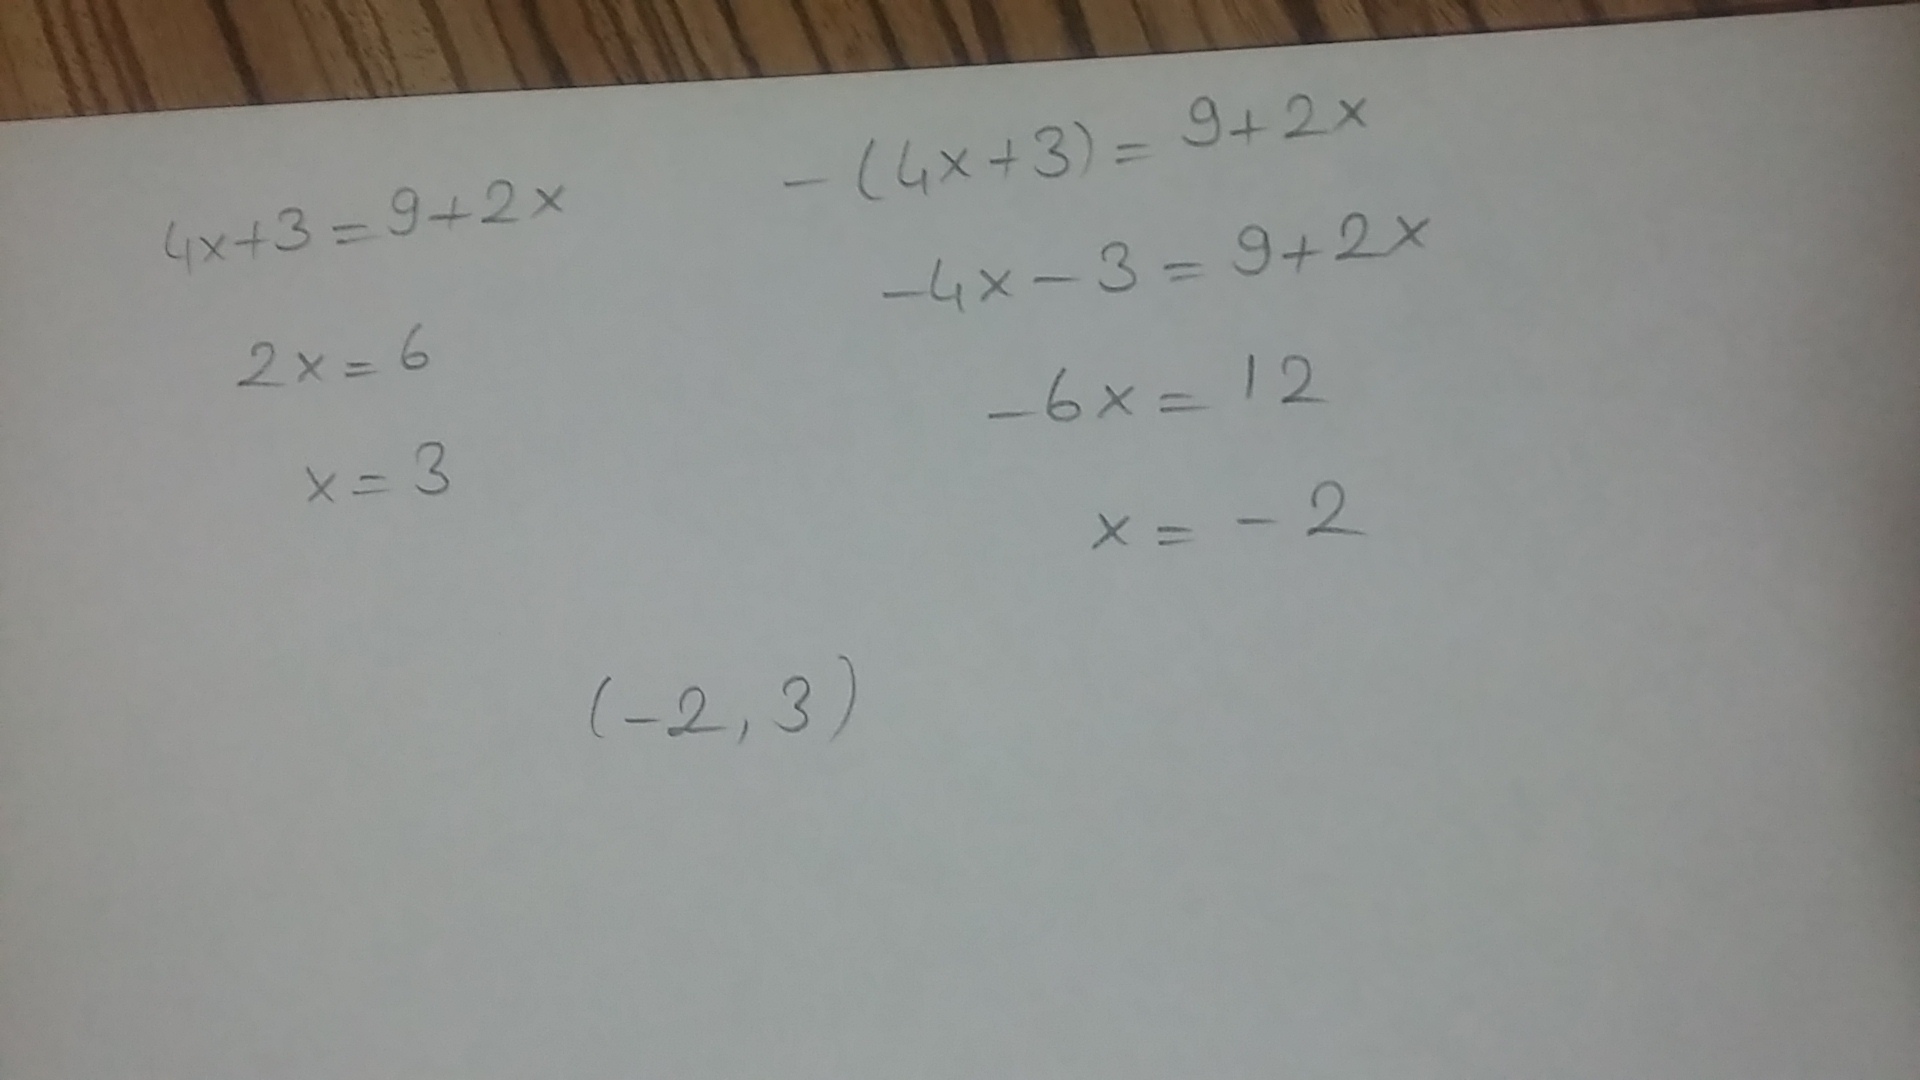 4x+3=9+2x
2x=6
x=3
-(4x+3)=9+2x
-4x-3=9+2x
-6x=12
x=-2
(-2,3)